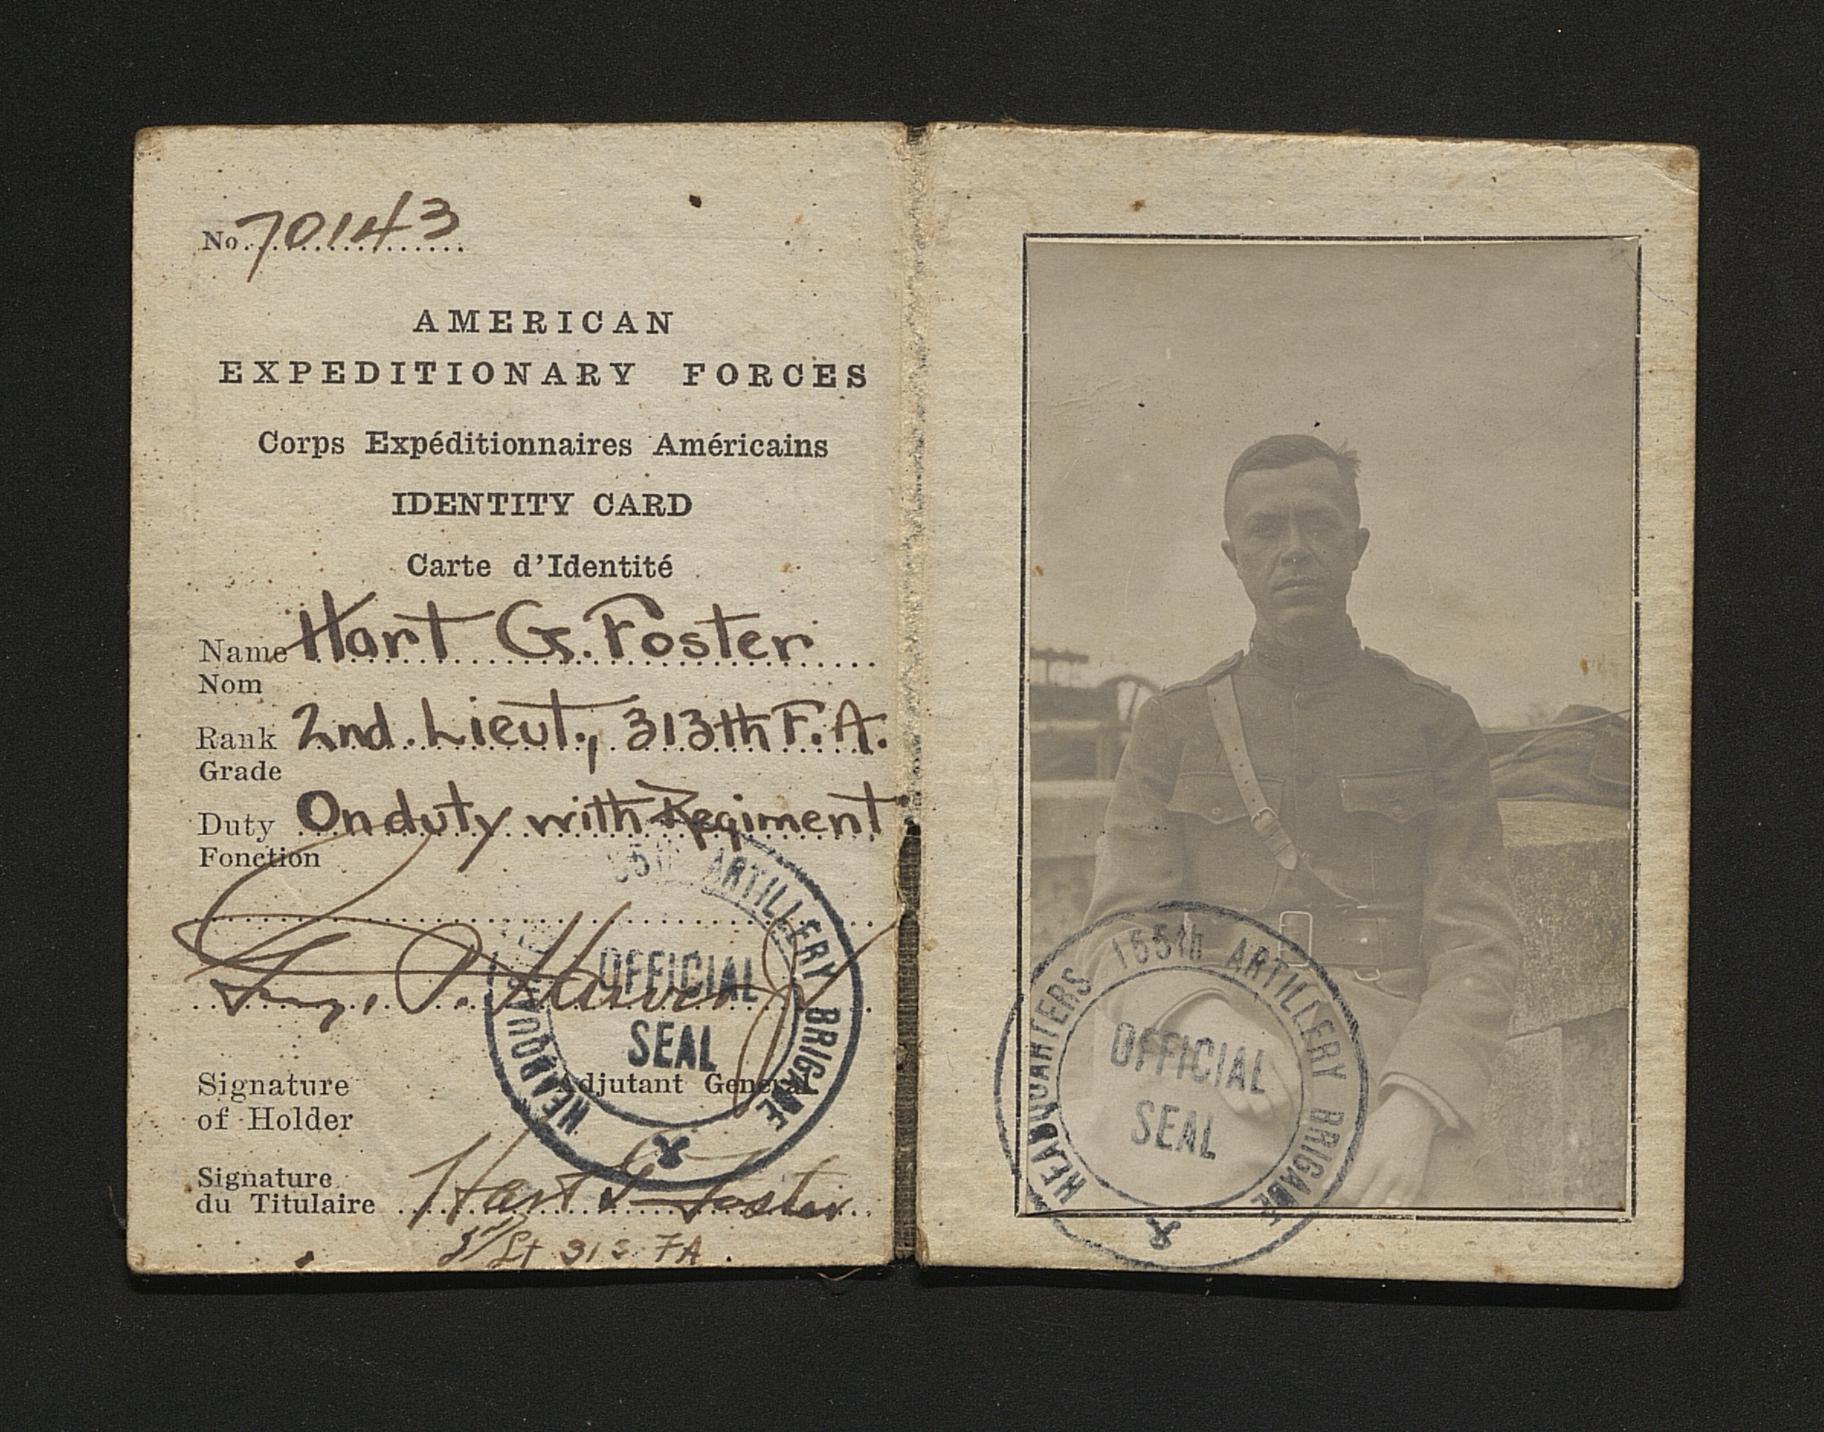 No. 70143
AMERICAN
EXPEDITIONARY FORCES
Corps Expéditionnaires Américains
IDENTITY CARD
Carte d'Identité
Name Hart G. Foster
Nom
Rank 2nd. Lieut., 313th F.A.
Grade
Duty On duty with Regiment
Fonction
Adjutant General
Signature
of Holder
Signature
du Titulaire Hart G Foster
Lt 313 FA
HEADQUARTERS 155th ARTILLERY BRIGADE
OFFICIAL
SEAL
HEADQUARTERS 155th ARTILLERY BRIGADE
OFFICIAL
SEAL